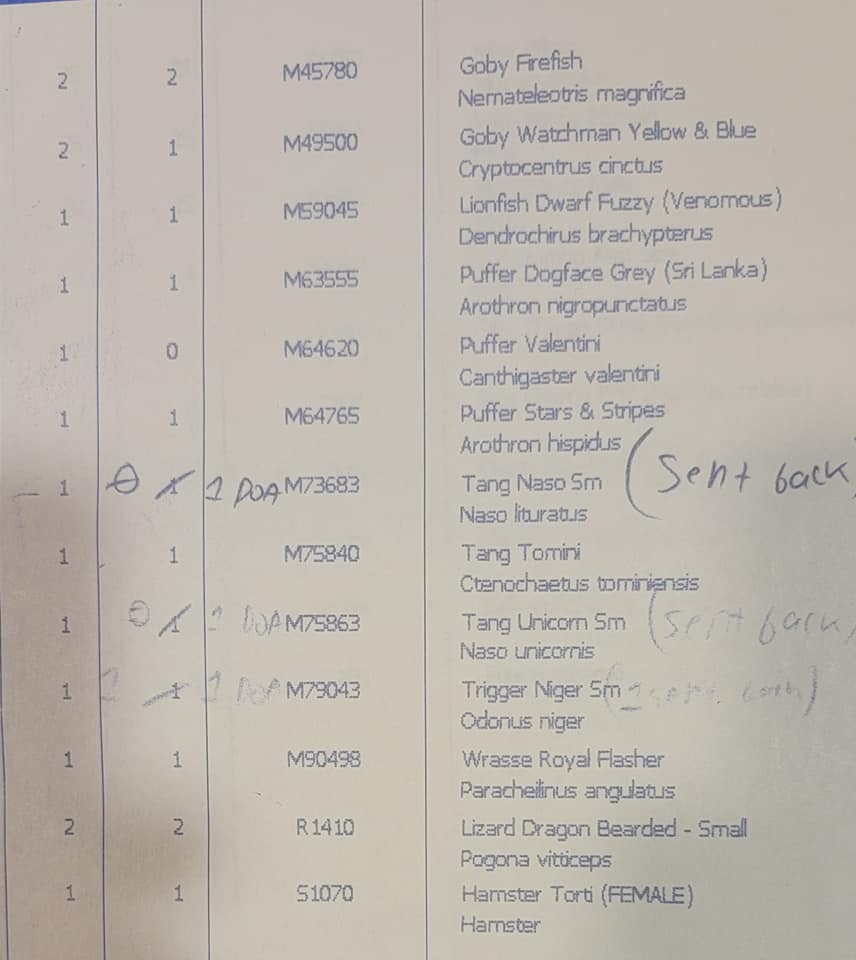 2 2 M45780 Goby Firefish
Nemateleotris magnifica
2 1 M49500 Goby Watchman Yellow & Blue
Cryptocentrus cinctus
1 1 M59045 Lionfish Dwarf Fuzzy (Venomous)
Dendrochirus brachypterus
1 1 M63555 Puffer Dogface Grey (Sri Lanka)
Arothron nigropunctatus
1 0 M64620 Puffer Valentini
Canthigaster valentini
1 1 M64765 Puffer Stars & Stripes
Arothron hispidus
1 0 1 1 DOA M73683 Tang Naso Sm (Sent back)
Naso lituratus
1 1 M75840 Tang Tomini
Ctenochaetus tominiensis
1 0 1 1 DOA M75863 Tang Unicorn Sm (Sent back)
Naso unicornis
1 1 1 DOA M79043 Trigger Niger Sm
Odonus niger
1 1 M90498 Wrasse Royal Flasher
Paracheilinus angulatus
2 2 R1410 Lizard Dragon Bearded - Small
Pogona vitticeps
1 1 S1070 Hamster Torti (FEMALE)
Hamster